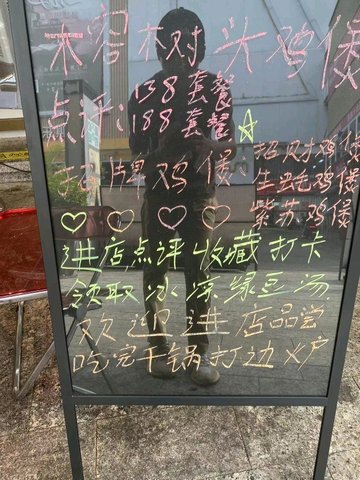 木客树头鸡煲
点评:138套餐
188套餐
招牌鸡煲
招财鸡煲
生蚝鸡煲
紫苏鸡煲
进店点评收藏打卡
领取冰凉绿豆汤
欢迎进店品尝
吃完干锅打边炉